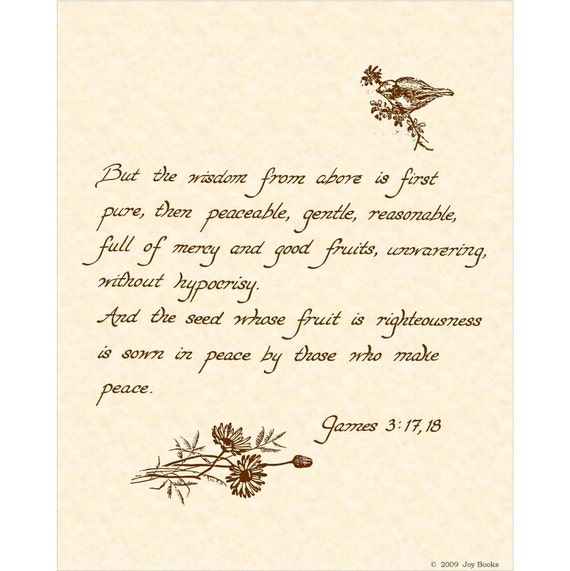 But the wisdom from above is first
pure, then peaceable, gentle, reasonable,
full of mercy and good fruits, unwavering,
without hypocrisy.
And the seed whose fruit is righteousness
is sown in peace by those who make
peace.
James 3:17,18
© 2009 Joy Books